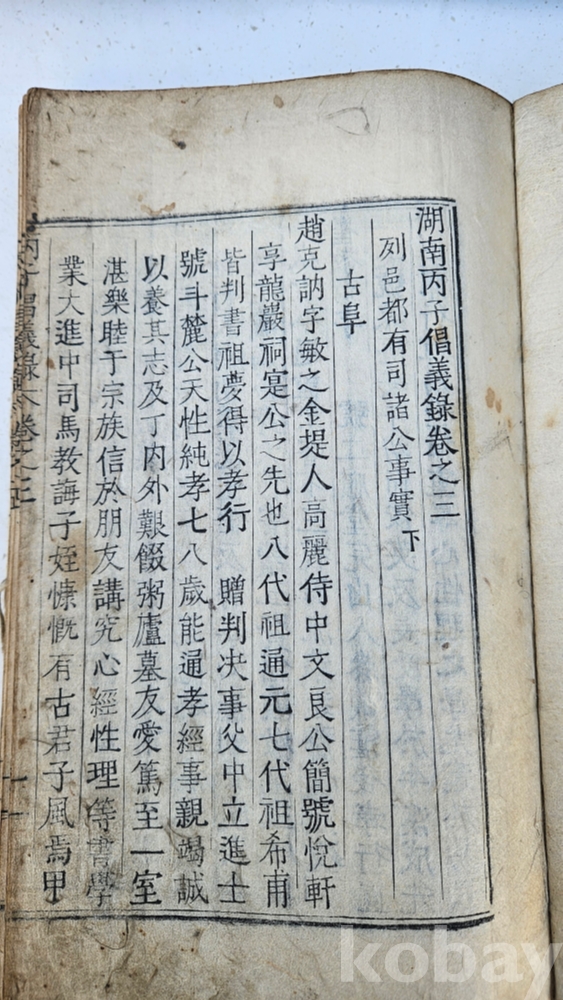 湖南丙子倡義錄卷之三
列邑都有司諸公事實 下
古阜
趙克訥字敏之金堤人高麗侍中文良公簡號悅軒
享龍巖祠寔公之先也八代祖通元七代祖希甫
皆判書祖夢得以孝行 贈判决事父中立進士
號斗麓公天性純孝七八歲能通孝經事親竭誠
以養其志及丁內外艱餟粥廬墓友愛篤至一室
湛樂睦于宗族信於朋友講究心經性理等書學
業大進中司馬教誨子姪慷慨有古君子風焉甲
丙子倡義錄 卷之三
kobay